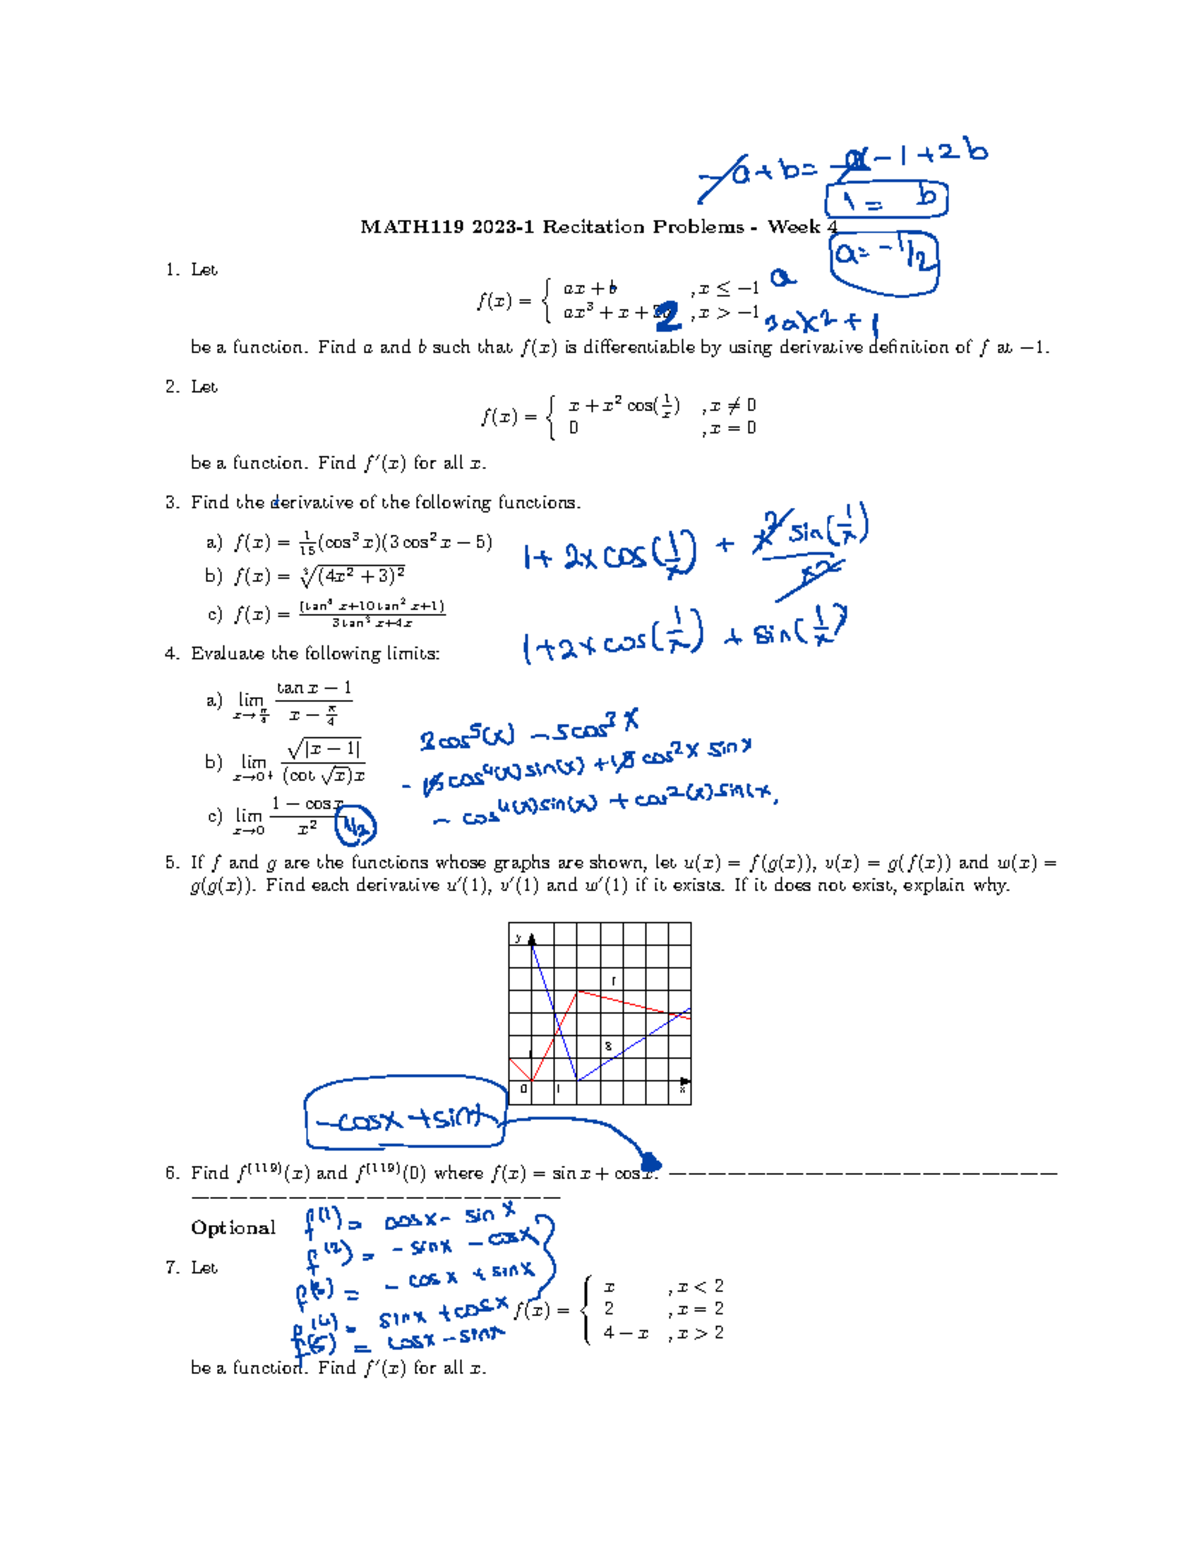 -a + b = -a - 1 + 2b
1 = b
MATH119 2023-1 Recitation Problems - Week 4
a = -1/2
1. Let
f(x) = { ax + b , x ≤ -1 a
ax³ + x + 2 , x > -1 3ax² + 1
be a function. Find a and b such that f(x) is differentiable by using derivative definition of f at −1.
2. Let
f(x) = { x + x² cos(1/x) , x ≠ 0
0 , x = 0
be a function. Find f′(x) for all x.
3. Find the derivative of the following functions.
a) f(x) = 1/15 (cos³ x)(3 cos² x − 5)
1 + 2x cos(1/x) + x² sin(1/x) / x²
b) f(x) = ∛(4x² + 3)²
c) f(x) = (tan⁴ x+10 tan² x+1) / 3 tan³ x+4x
1 + 2x cos(1/x) + sin(1/x)
4. Evaluate the following limits:
a) lim x→π/4 tan x − 1 / x − π/4
3cos⁵(x) - 5cos³x
b) lim x→0+ √|x − 1| / (cot √x)x
- 15cos⁴(x) sin(x) + 15 cos²x sinx
- cos⁴(x) sin(x) + cos²(x) sin(x)
c) lim x→0 1 − cos x / x² 1/2
5. If f and g are the functions whose graphs are shown, let u(x) = f(g(x)), v(x) = g(f(x)) and w(x) =
g(g(x)). Find each derivative u′(1), v′(1) and w′(1) if it exists. If it does not exist, explain why.
y
f
g
1
0 1 x
-cosx + sinx
6. Find f⁽¹¹⁹⁾(x) and f⁽¹¹⁹⁾(0) where f(x) = sin x + cos x.
Optional
f(1) = cosx - sinx
f(2) = -sinx - cosx
7. Let
f(3) = - cosx + sinx
f(4) = sinx + cosx
f(5) = cosx - sinx
f(x) = { x , x < 2
2 , x = 2
4 − x , x > 2
be a function. Find f′(x) for all x.